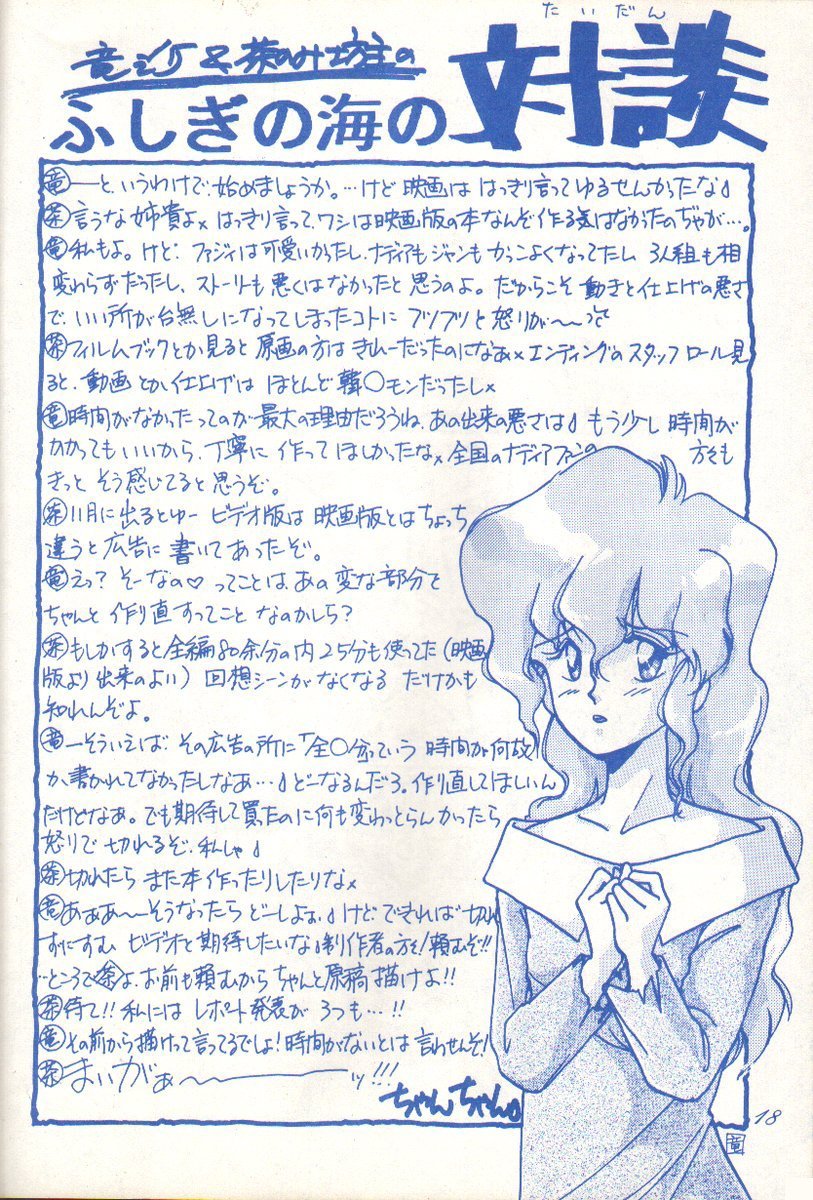 たいだん
竜シケ&茶のみ坊主の
対談
ふしぎの海の
竜―と、いうわけで、始めましょうか。…けど映画は はっきり言って ゆるせんかったな♪
茶言うな姉貴よ× はっきり言って、ワシは映画版の本なんぞ作る気はなかったのぢゃが…。
竜私もよ。けど、ファジィは可愛いかったし、ナディアもジャンもかっこよくなってたし 3人組も相
変わらずだったし、ストーリーも悪くはなかったと思うのよ。だからこそ動きと仕上げの悪さ
で、いい所が台無しになってしまったコトに ブツブツと怒りが〜〜
茶フィルムブックとか見ると原画の方はきれーだったのになぁ× エンディングのスタッフロール見
ると、動画とか仕上げは ほとんど韓○モンだったし×
竜時間がなかったってのが最大の理由だろうね、あの出来の悪さは♪ もう少し時間が
かかってもいいから、丁寧に作ってほしかったな× 全国のナディアファンの 方々も
きっと そう感じてると思うぞ。
茶11月に出るとゆー ビデオ版は 映画版とはちょっち
違うと広告に書いてあったぞ。
竜えっ? そーなの♡ ってことは、あの変な部分を
ちゃんと作り直すってこと なのかしら?
茶もしかすると全編80余分の内25分も使ってた(映画
版より出来のよい) 回想シーンがなくなる だけかも
知れんぞよ。
竜―そういえば、その広告の所に「全○分」っていう 時間が何故
か書かれてなかったしなぁ…♪ どーなるんだろ。作り直してほしいん
だけどなぁ。でも期待して買ったのに何も変わっとらんかったら
怒りで切れるぞ、私しゃ♪
茶切れたら また本作ったりしたりな×
竜あぁあ〜〜そうなったら どーしよぉ♪けど できれば 切れ
ずにすむ ビデオを期待したいな♪制作者の方々!頼むぞ!!
…ところで茶よ、お前も頼むからちゃんと原稿描けよ!!
茶待て!! 私には レポート発表が 3つも…!!
竜その前から描けって言ってるでしょ!時間がないとは言わせんぞ!
茶まいがぁ〜〜〜ッ!!!
ちゃんちゃん♪
18
竜